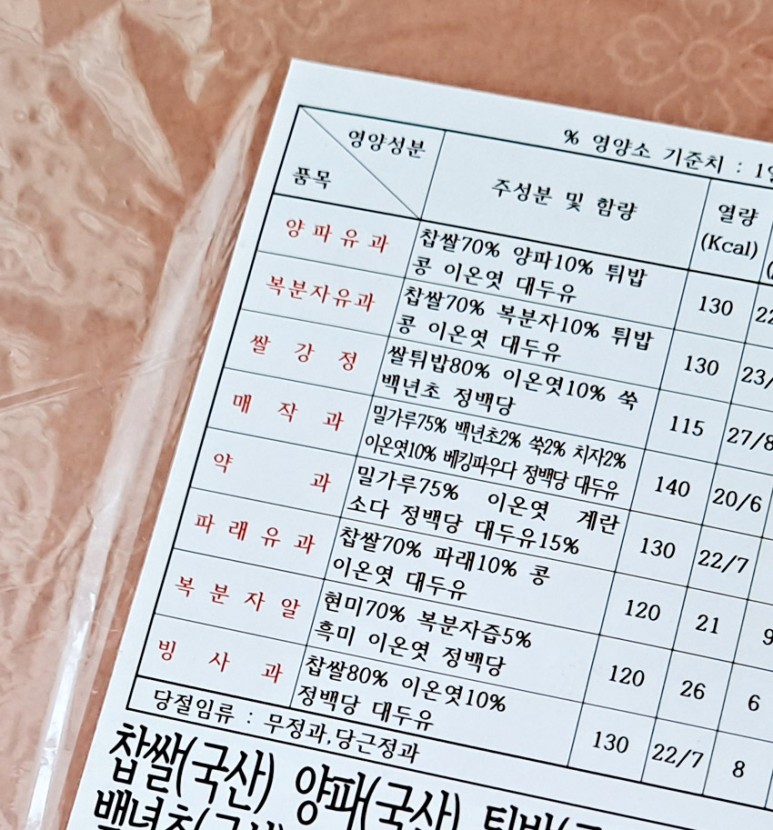 % 영양소 기준치 : 1일
영양성분
품목
주성분 및 함량
열량
(Kcal)
양파유과
찹쌀70% 양파10% 튀밥
콩 이온엿 대두유
130
22
복분자유과
찹쌀70% 복분자10% 튀밥
콩 이온엿 대두유
130
23/
쌀강정
쌀튀밥80% 이온엿10% 쑥
백년초 정백당
115
27/8
매작과
밀가루75% 백년초2% 쑥2% 치자2%
이온엿10% 베킹파우다 정백당 대두유
140
20/6
약과
밀가루75% 이온엿 계란
소다 정백당 대두유15%
130
22/7
파래유과
찹쌀70% 파래10% 콩
이온엿 대두유
120
21
9
복분자알
현미70% 복분자즙5%
흑미 이온엿 정백당
120
26
6
빙사과
찹쌀80% 이온엿10%
정백당 대두유
130
22/7
8
당절임류 : 무정과,당근정과
찹쌀(국산) 양파(국산)